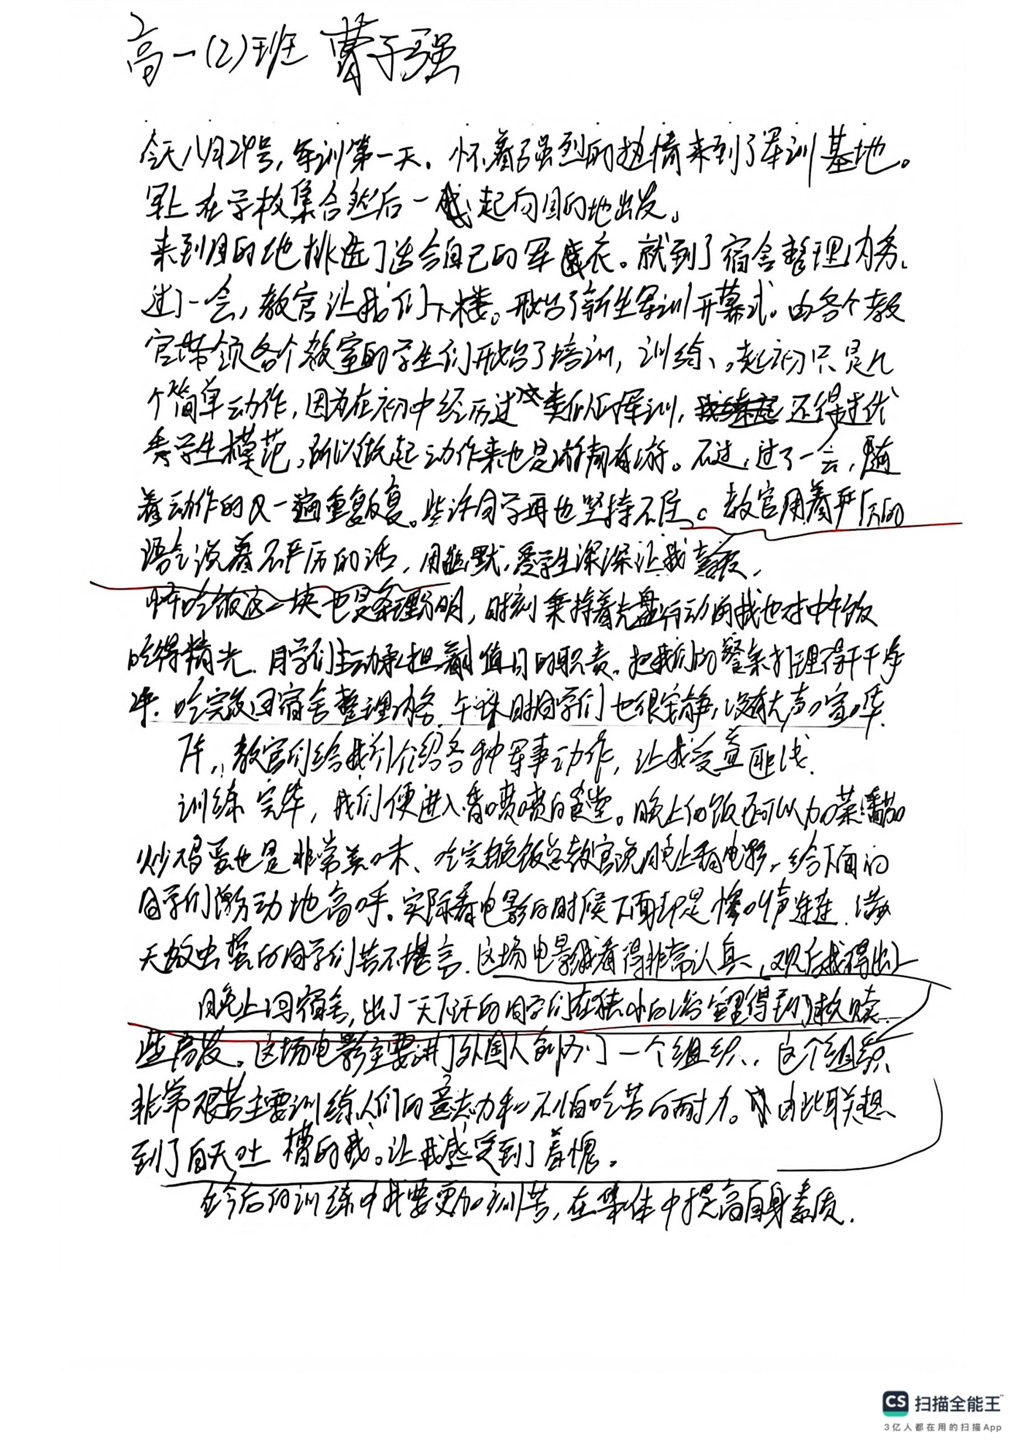 高一(2)班 曹子强
今天八月24号,军训第一天。怀着了强烈的热情来到了军训基地。
早上在学校集合然后一起向目的地出发。
来到目的地挑选了适合自己的军衣。就到了宿舍整理内务。
过了一会,教官让我们下楼。开始了新生军训开幕式。由各个教
官带领各个教室的学生们开始了培训,训练、。起初只是几
个简单动作,因为在初中经历过类似的军训,还得过优
秀学生模范。所以做起动作来也是游刃有余。不过,过了一会,随
着动作的一遍重复反复。些许同学再也坚持不住。教官用着严厉的
语气说着不严厉的话,用幽默,受学生深深让我喜欢,
中午吃饭这一块也是条理分明,时刻秉持着光盘行动的我也对中午饭
吃得精光。同学们主动承担着值日的职责。把我们的餐桌打理得干干净
净。吃完饭回宿舍整理内务。午休时同学们也很安静,没有大声喧哗
下午,教官们给我们介绍各种军事动作,让我受益匪浅。
训练完毕,我们便进入香喷喷的食堂。晚上的饭还可以加菜番茄
炒鸡蛋也是非常美味。吃完晚饭总教官说晚上看电影,给下面的
同学们激动地高呼。实际看电影的时候下面却是惨叫声连连,满
天蚊虫蜇的同学们苦不堪言。这场电影我看得非常认真,观后我得出
晚上回宿舍,出了一天汗的同学们在狭小的浴室里得到了救赎。
些启发。这场电影主要讲了外国人创办了一个组织、这个组织
非常艰苦主要训练人们的意志力和不怕吃苦的耐力。由此联想
到了白天吐槽的我。让我感受到了羞愧。
在今后的训练中我要更加刻苦,在集体中提高自身素质。
CS 扫描全能王
3亿人都在用的扫描App